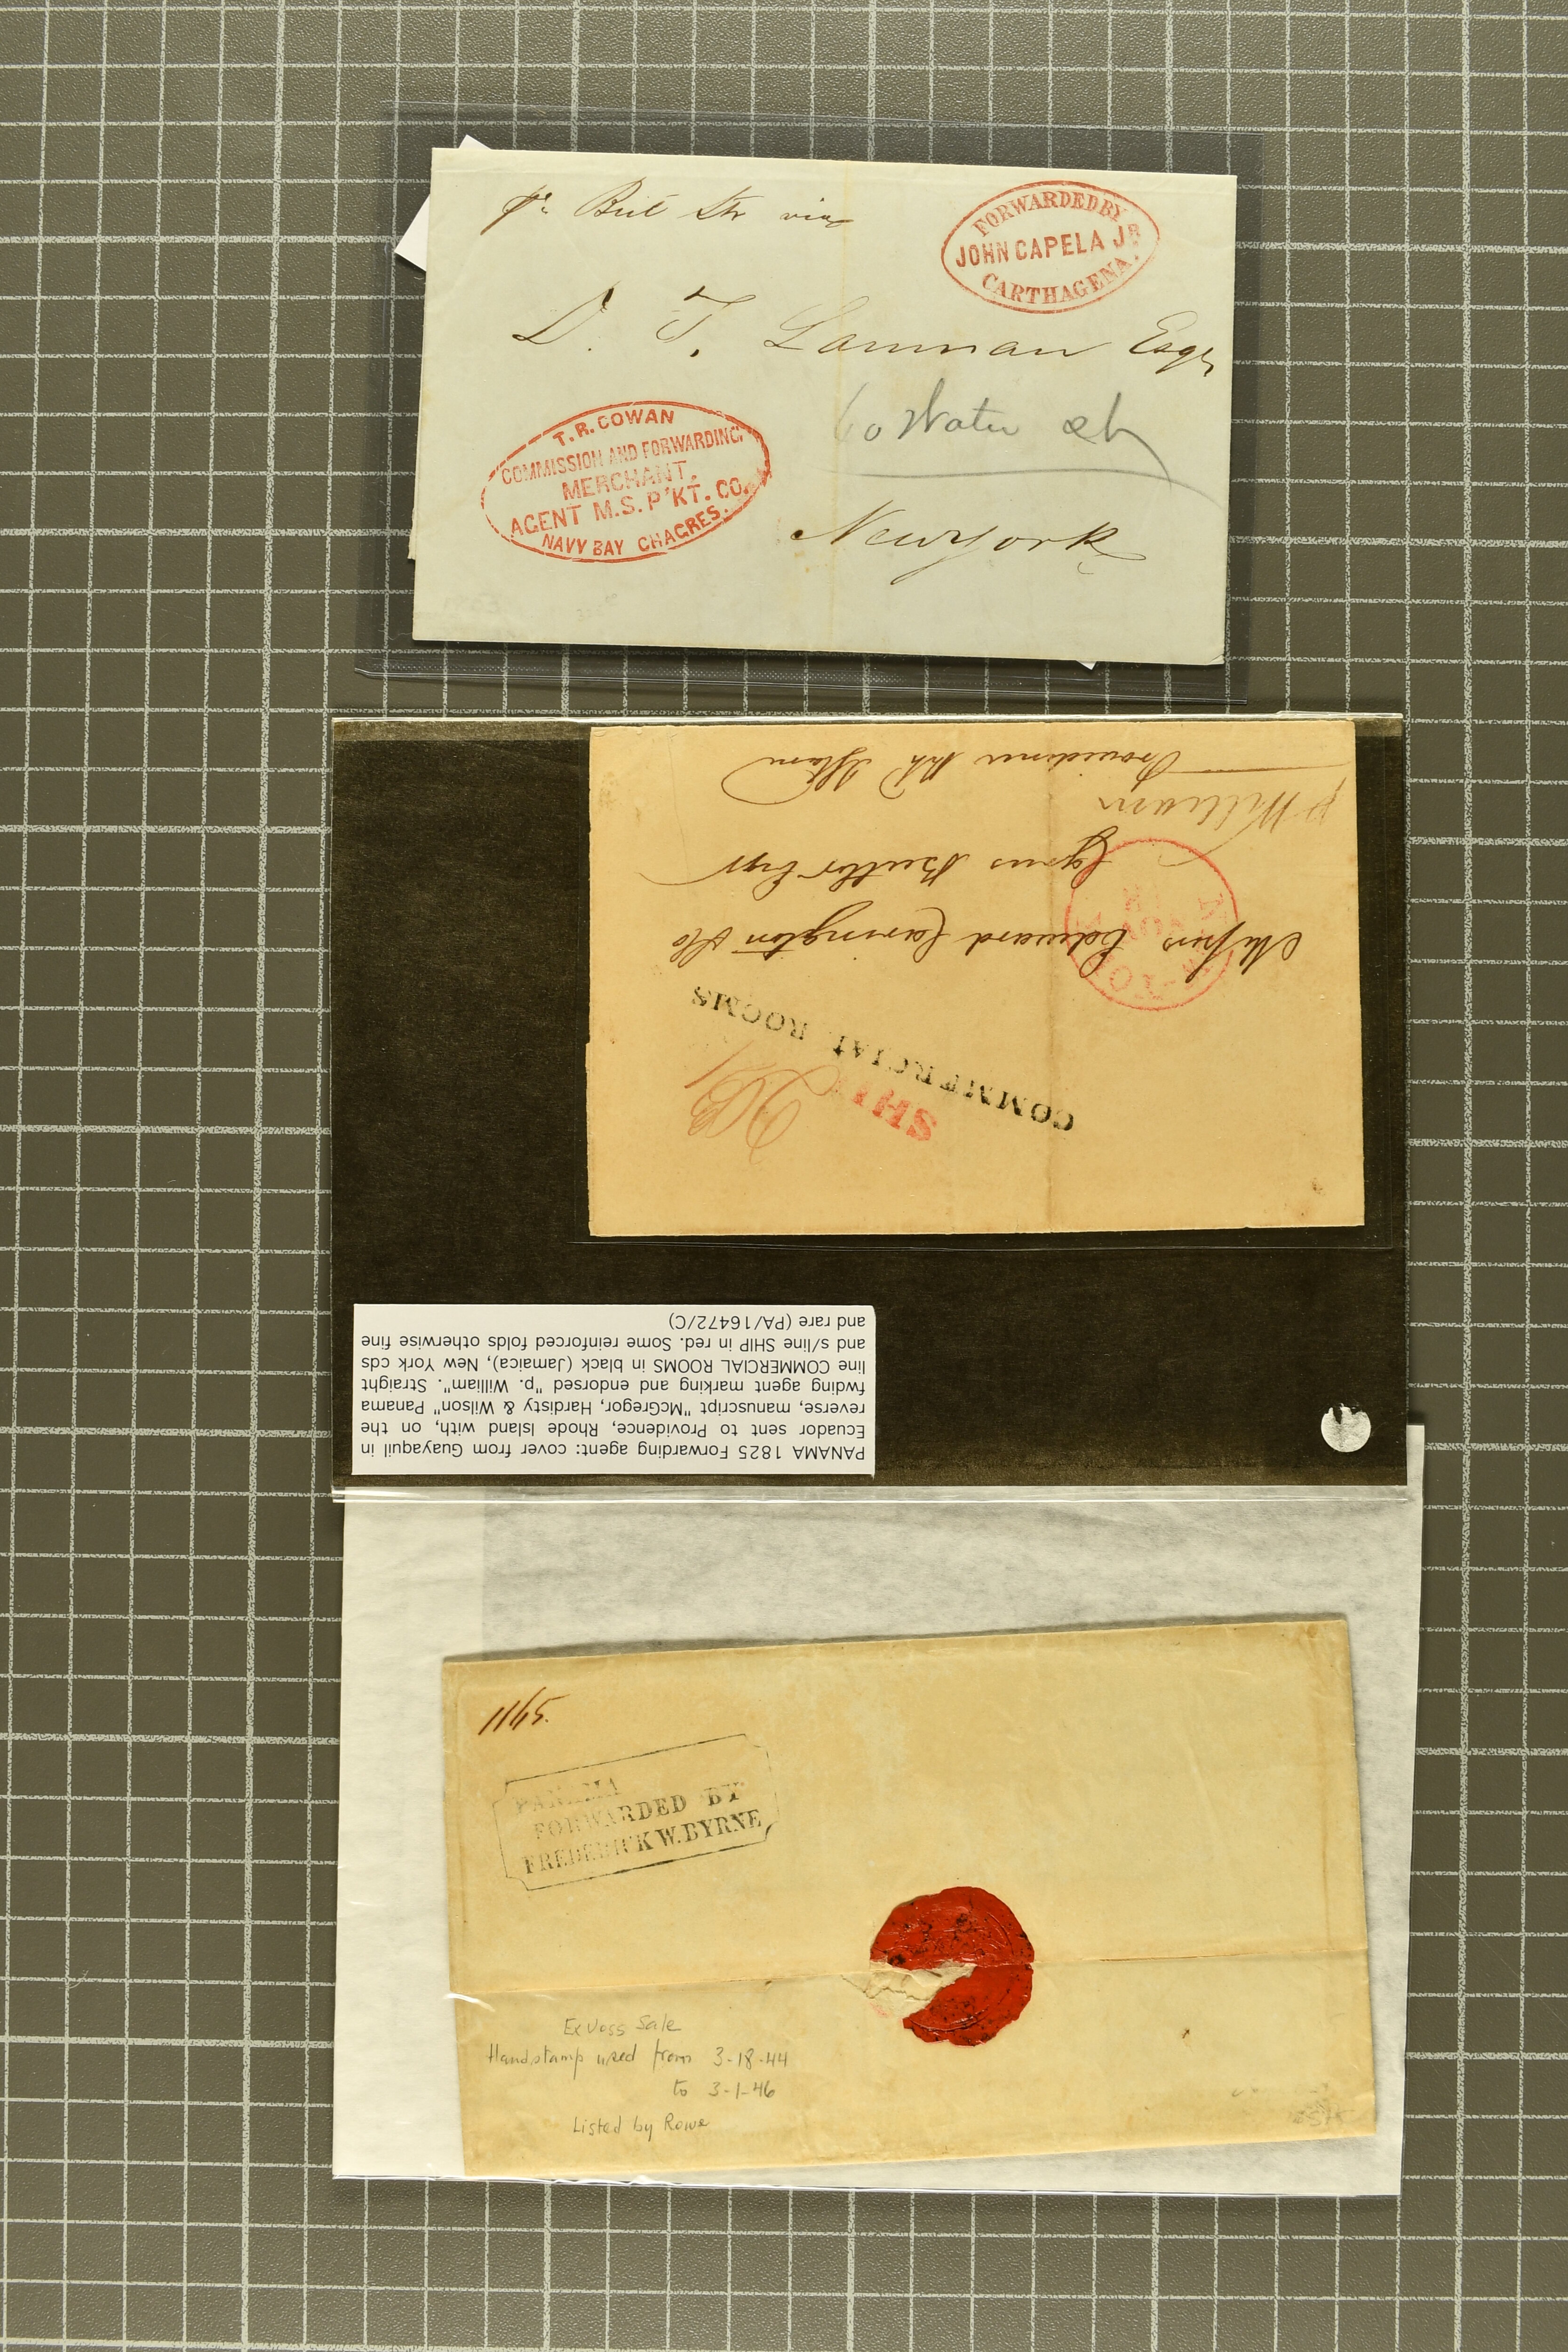 pr Brit Str via
FORWARDED BY
JOHN CAPELA JR
CARTHAGENA.
D. T. Lanman Esqr
60 Water St
New York
T. R. COWAN
COMMISSION AND FORWARDING
MERCHANT,
AGENT M.S. P'KT. CO.
NAVY BAY CHAGRES.
COMMERCIAL ROOMS
SHIP
NEW-YORK
NOV
Messrs Edward Carrington & Co
Cyrus Butler Esqr
p William
Providence
PANAMA 1825 Forwarding agent: cover from Guayaquil in
Ecuador sent to Providence, Rhode Island with, on the
reverse, manuscript "McGregor, Hardisty & Wilson" Panama
fwding agent marking and endorsed "p. William". Straight
line COMMERCIAL ROOMS in black (Jamaica), New York cds
and s/line SHIP in red. Some reinforced folds otherwise fine
and rare (PA/16472/C)
1145.
PANAMA
FORWARDED BY
FREDERICK W. BYRNE
Ex Voss Sale
Handstamp used from 3-18-44
to 3-1-46
Listed by Rowe